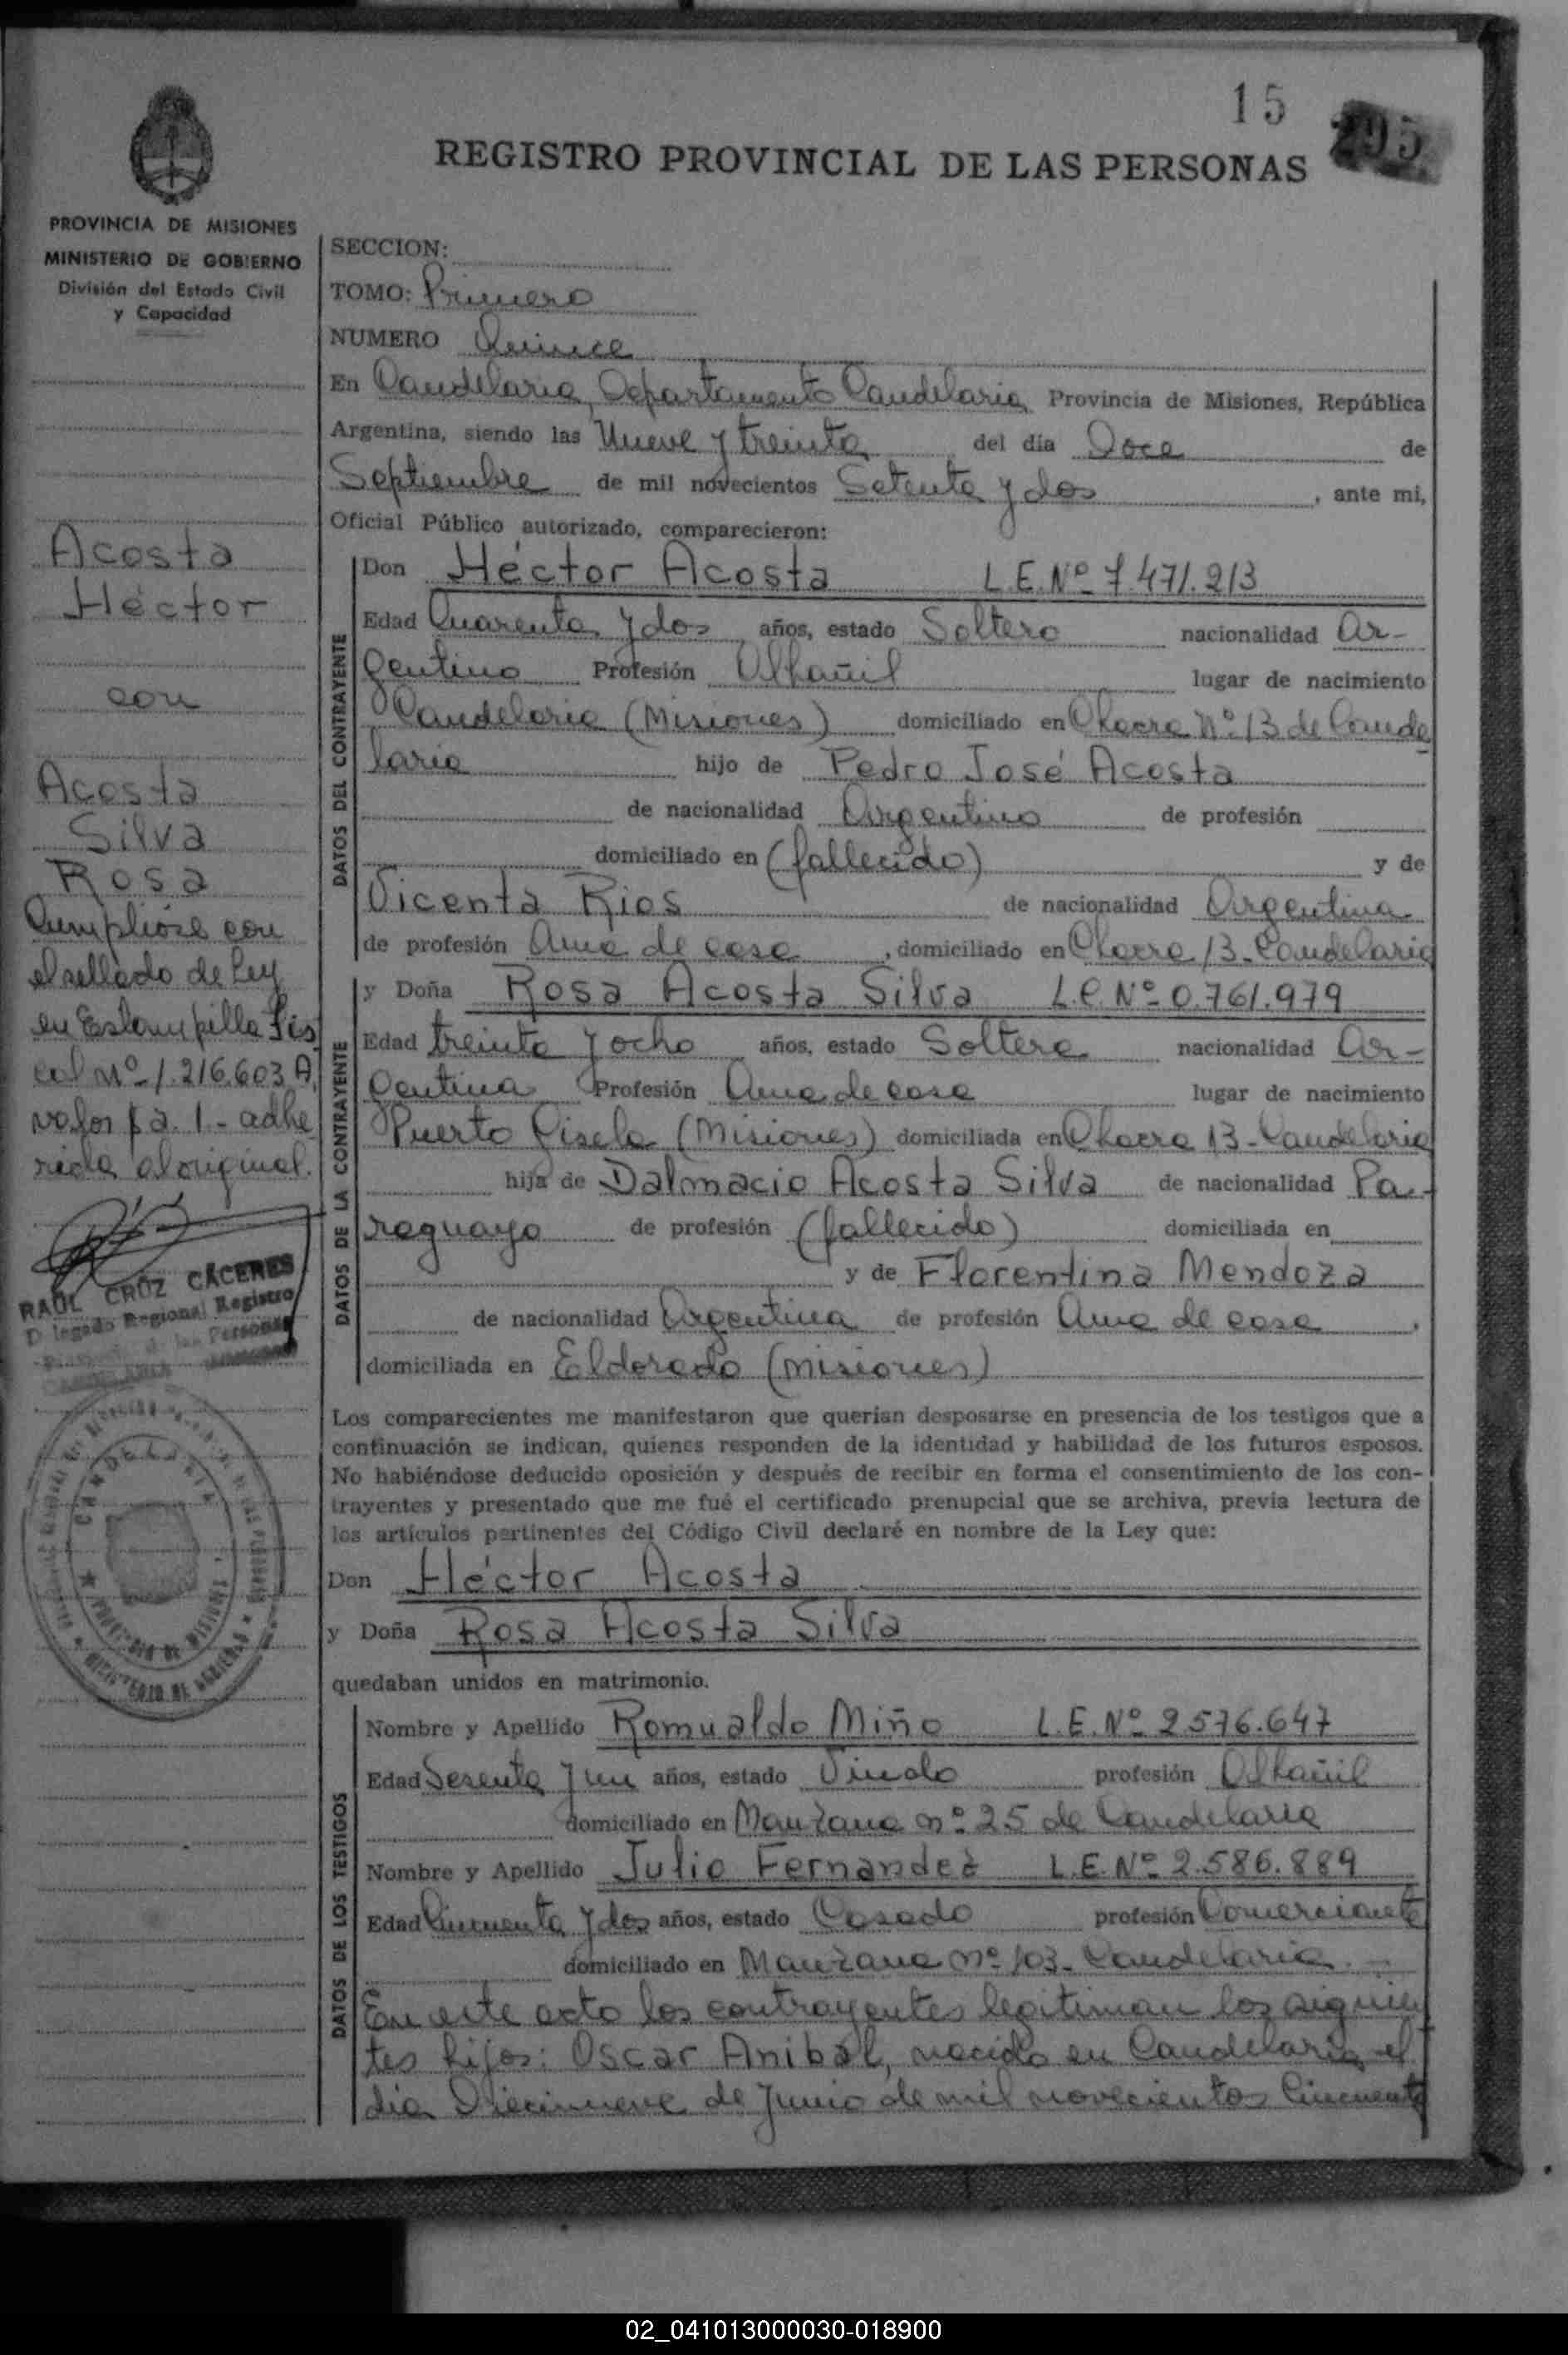 15
295
REGISTRO PROVINCIAL DE LAS PERSONAS
PROVINCIA DE MISIONES
MINISTERIO DE GOBIERNO
División del Estado Civil
y Capacidad
Acosta
Héctor
con
Acosta
Silva
Rosa
Cumplióse con
el sellado de Ley
en Estampilla Fis
cal Nº 1.216.603 A,
valor $ a. 1.- adhe
rida al original.
RAUL CRUZ CACERES
Delegado Regional Registro
de las Personas
CANDELARIA
CANDELARIA
PROVINCIA DE MISIONES
MINISTERIO DE GOBIERNO
SECCION:
TOMO: Primero
NUMERO Quince
En Candelaria, Departamento Candelaria Provincia de Misiones, República
Argentina, siendo las Nueve y treinta del día Doce de
Septiembre de mil novecientos Setenta y dos, ante mi,
Oficial Público autorizado, comparecieron:
DATOS DEL CONTRAYENTE
Don Héctor Acosta L.E. Nº 7.471.213
Edad Cuarenta y dos años, estado Soltero nacionalidad Ar-
gentino Profesión Albañil lugar de nacimiento
Candelaria (Misiones) domiciliado en Chacra Nº 13 de Cande
laria hijo de Pedro José Acosta
de nacionalidad Argentino de profesión
domiciliado en (fallecido) y de
Vicenta Rios de nacionalidad Argentina
de profesión Ama de casa, domiciliado en Chacra 13-Candelaria
DATOS DE LA CONTRAYENTE
y Doña Rosa Acosta Silva L.C. Nº 0.761.979
Edad treinta y ocho años, estado Soltera nacionalidad Ar-
gentina Profesión Ama de casa lugar de nacimiento
Puerto Gisela (Misiones) domiciliada en Chacra 13-Candelaria
hija de Dalmacio Acosta Silva de nacionalidad Pa-
raguayo de profesión (fallecido) domiciliada en
y de Florentina Mendoza
de nacionalidad Argentina de profesión Ama de casa,
domiciliada en Eldorado (Misiones)
Los comparecientes me manifestaron que querían desposarse en presencia de los testigos que a
continuación se indican, quienes responden de la identidad y habilidad de los futuros esposos.
No habiéndose deducido oposición y después de recibir en forma el consentimiento de los con-
trayentes y presentado que me fué el certificado prenupcial que se archiva, previa lectura de
los artículos pertinentes del Código Civil declaré en nombre de la Ley que:
Don Héctor Acosta
y Doña Rosa Acosta Silva
quedaban unidos en matrimonio.
DATOS DE LOS TESTIGOS
Nombre y Apellido Romualdo Miño L.E. Nº 2.576.647
Edad Sesenta y un años, estado Viudo profesión Albañil
domiciliado en Manzana nº 25 de Candelaria
Nombre y Apellido Julio Fernandez L.E. Nº 2.586.889
Edad Cincuenta y dos años, estado Casado profesión Comerciante
domiciliado en Manzana nº 103-Candelaria.-
En este acto los contrayentes legitiman los siguien
tes hijos: Oscar Anibal, nacido en Candelaria el
día Diecinueve de Junio de mil novecientos Cincuenta
02_041013000030-018900